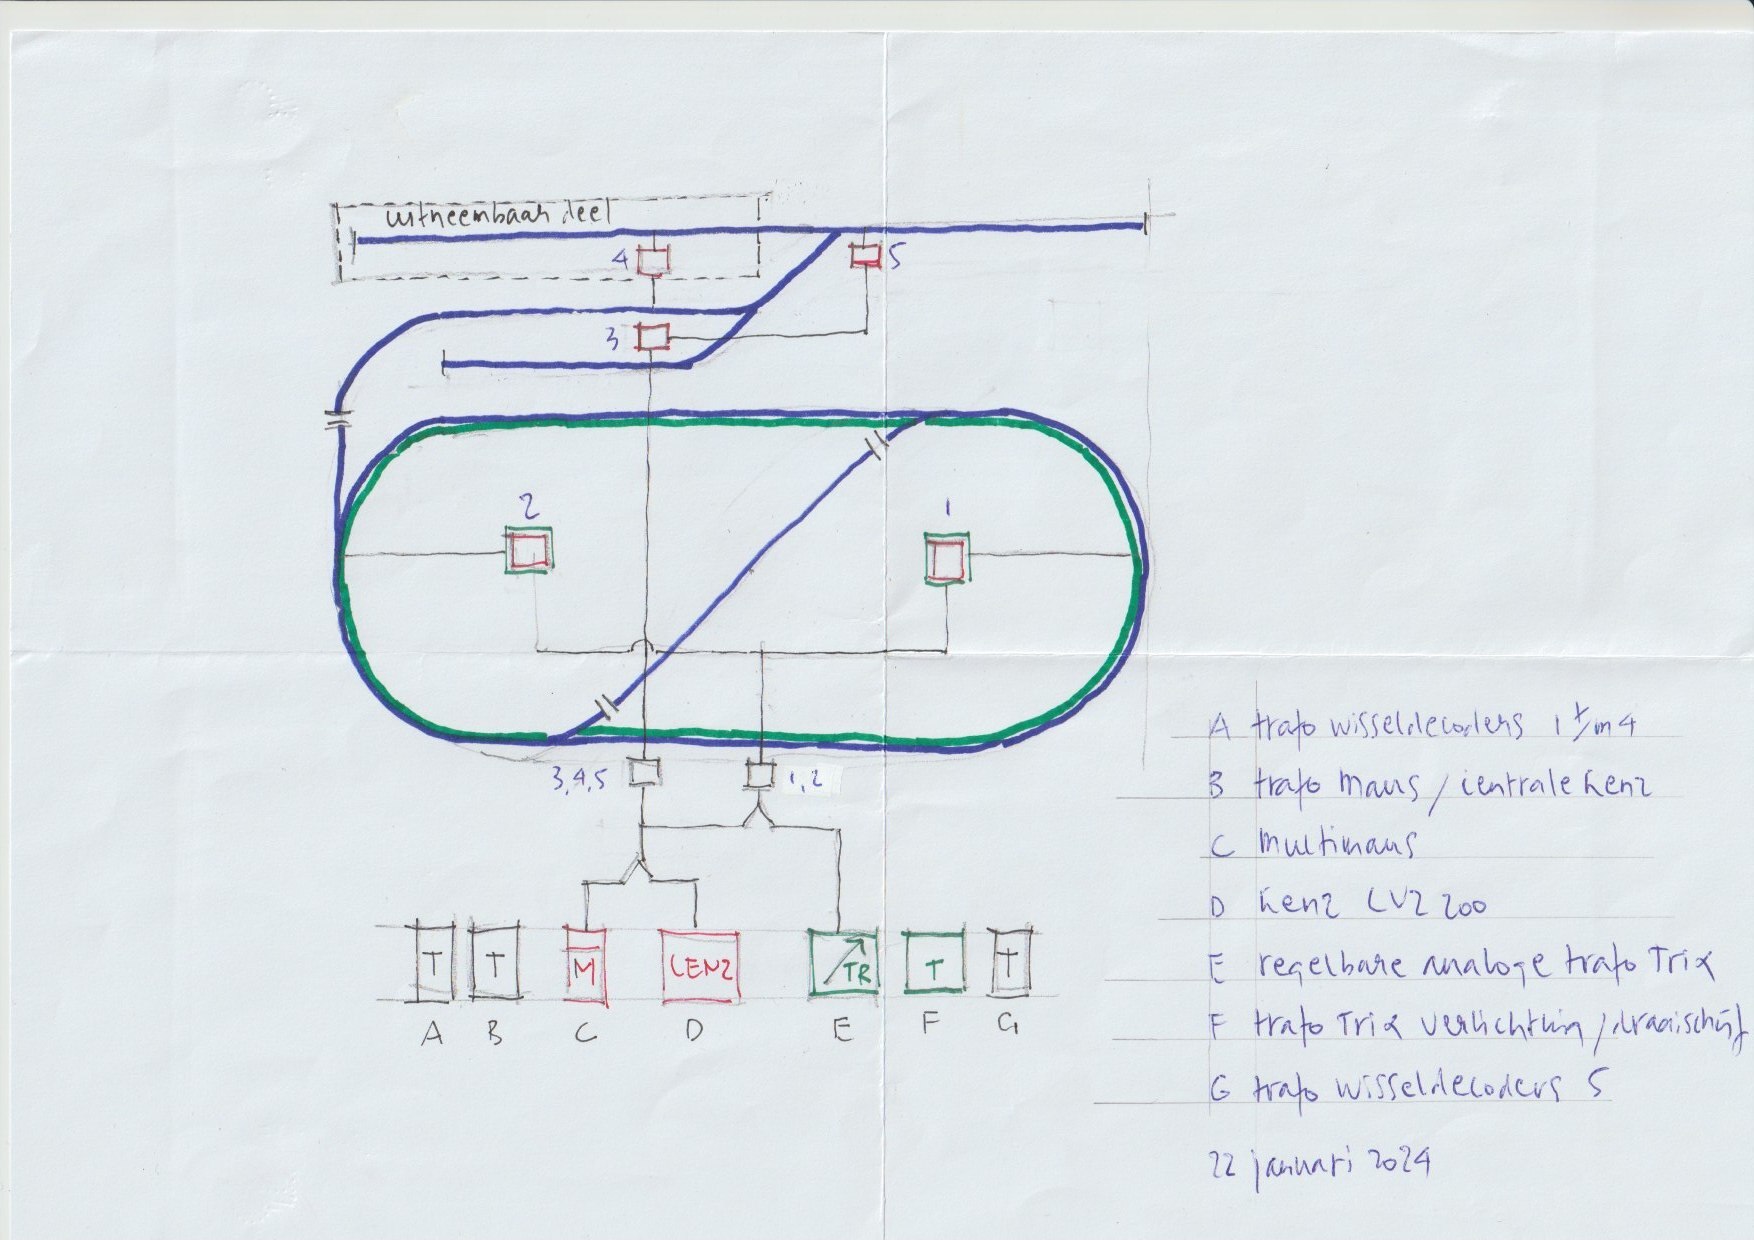 uitneembaar deel
4
5
3
2
1
3,4,5
1,2
T
T
M
LENZ
TR
T
T
A
B
C
D
E
F
G
A trafo wisseldecoders 1 t/m 4
B trafo Maus / centrale Lenz
C Multimaus
D Lenz LVZ 200
E regelbare analoge trafo Trix
F trafo Trix verlichting / draaischijf
G trafo wisseldecoders 5
22 januari 2024